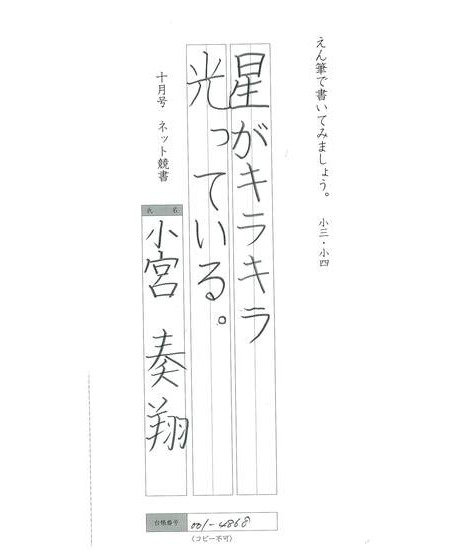 えん筆で書いてみましょう。 小三・小四
星がキラキラ
光っている。
十月号 ネット競書
氏名
小宮 奏翔
台帳番号 001-4868
(コピー不可)